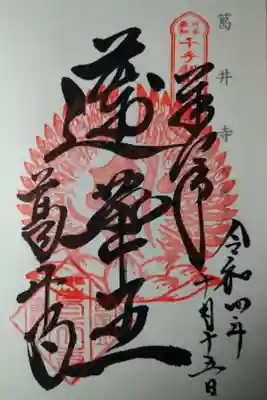 葛井寺
奉拝
蓮華王
葛井寺
令和四年
十月十五日